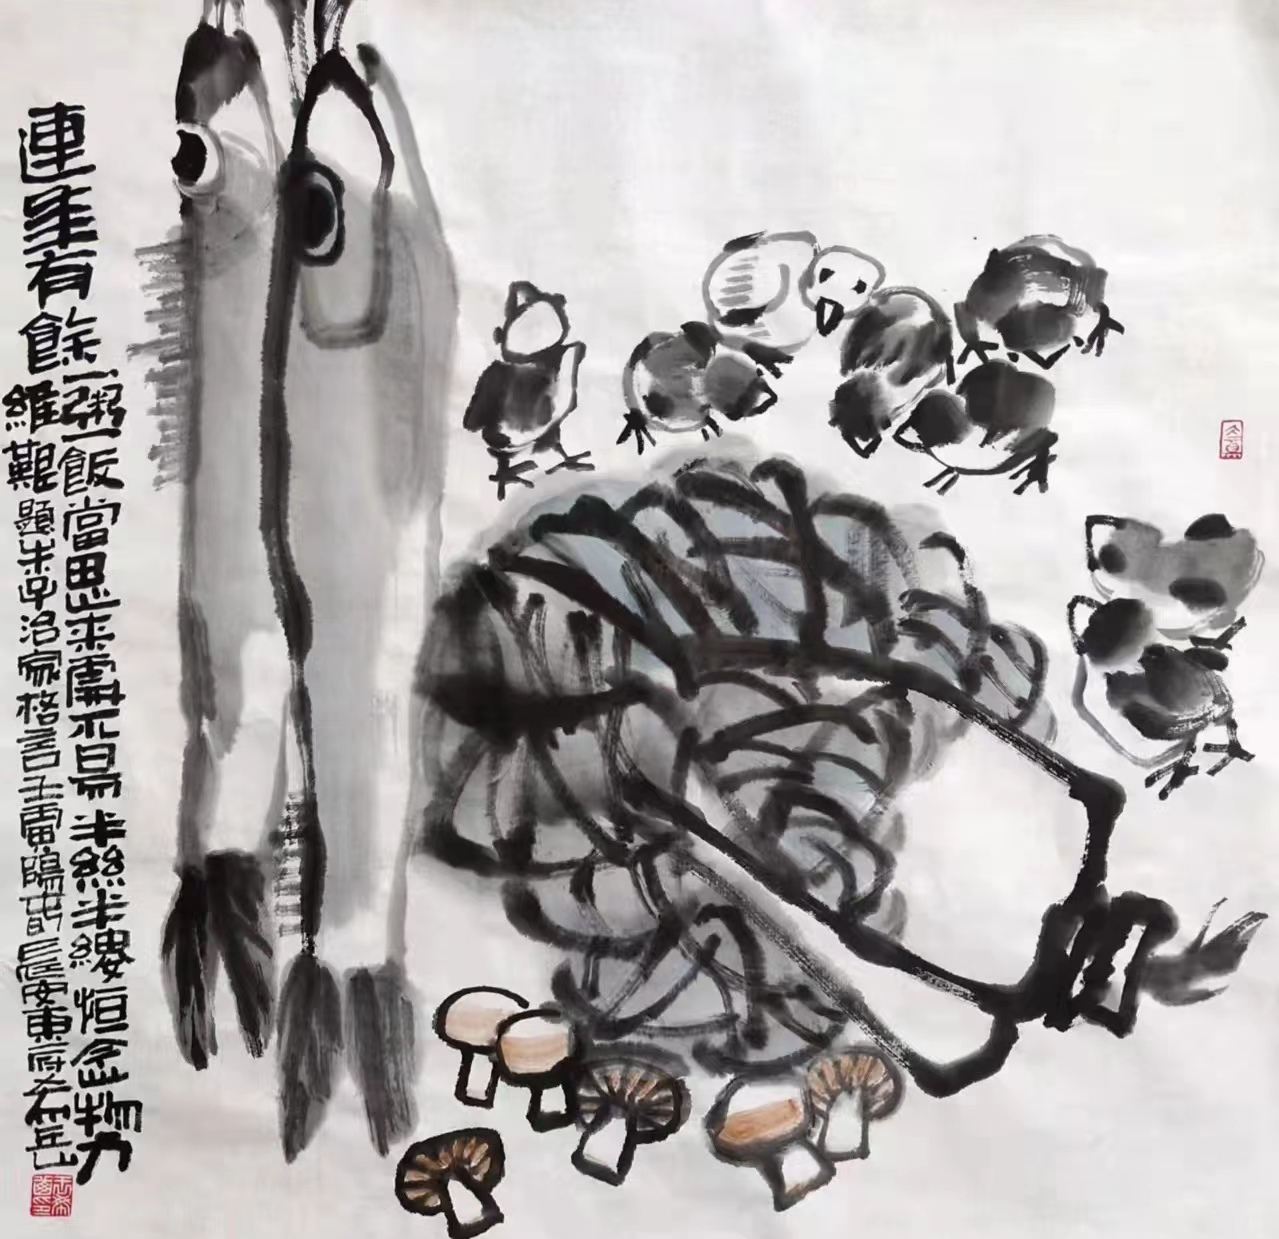 連年有餘
一粥一飯當思來處不易半絲半縷恒念物力
維艱 題朱子治家格言壬寅陽長安東府石岳